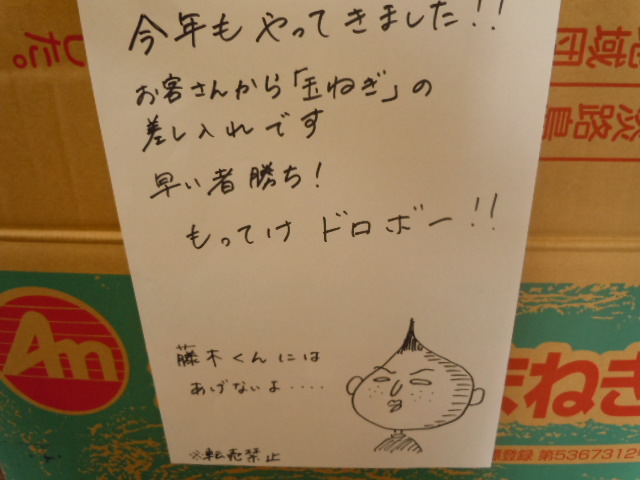 今年もやってきました!!
お客さんから「玉ねぎ」の
差し入れです
早い者勝ち!
もってけ ドロボー!!
藤木くんには
あげないよ・・・・
※転売禁止
した。
地域団
淡路島
An
まねぎ
登録 第5367312号